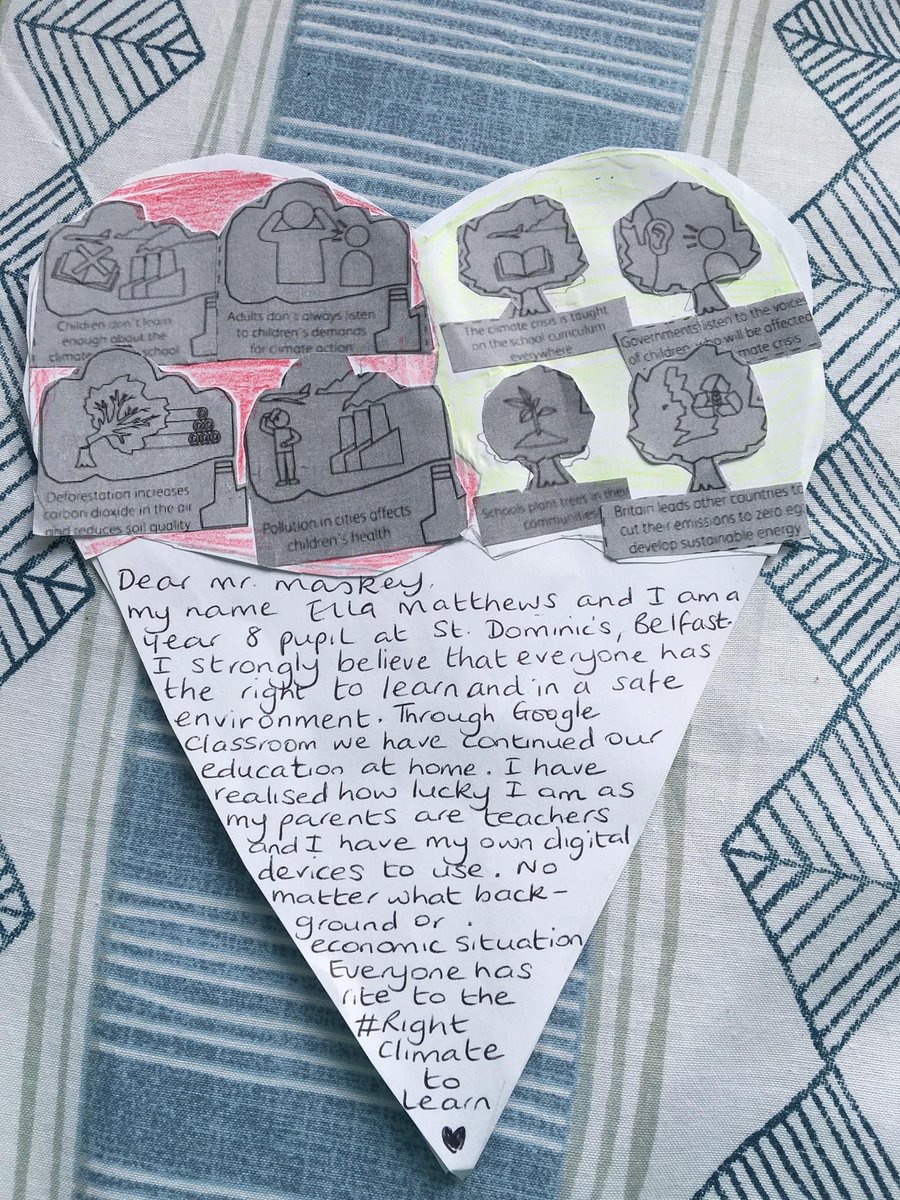 Children don't learn
enough about the
climate school
Adults don't always listen
to children's demands
for climate action
The climate crisis is taught
on the school curriculum
everywhere
Governments listen to the voices
of children who will be affected
climate crisis
Deforestation increases
carbon dioxide in the air
and reduces soil quality
Pollution in cities affects
children's health
Schools plant trees in their
communities
Britain leads other countries to
cut their emissions to zero eg.
develop sustainable energy
Dear mr. maskey,
my name Ella Matthews and I am a
Year 8 pupil at St. Dominic's, Belfast.
I strongly believe that everyone has
the right to learn and in a safe
environment. Through Google
Classroom we have continued our
education at home. I have
realised how lucky I am as
my parents are teachers
and I have my own digital
devices to use. No
matter what back-
ground or
economic situation
Everyone has
rite to the
#Right
Climate
to
Learn